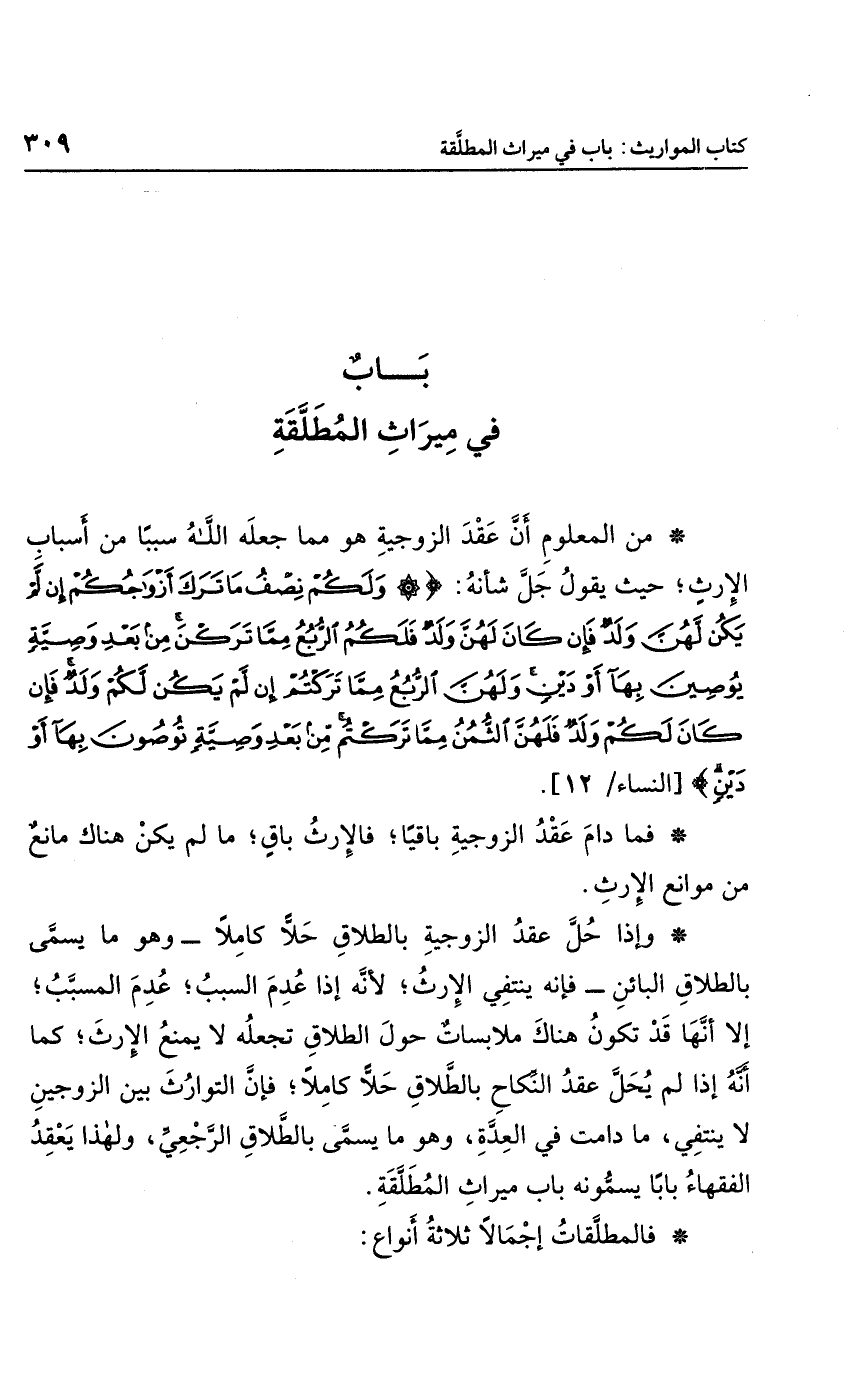 كتاب المواريث : باب في ميراث المطلَّقة ٣٠٩
بَـــابٌ
في مِيرَاثِ المُطَلَّقَةِ
* من المعلومِ أَنَّ عَقْدَ الزوجيةِ هو مما جعلَه اللَّهُ سببًا من أَسبابِ
الإِرثِ؛ حيث يقولُ جَلَّ شأنهُ: ﴿ ۞ وَلَكُمْ نِصْفُ مَا تَرَكَ أَزْوَٰجُكُمْ إِن لَّمْ
يَكُن لَّهُنَّ وَلَدٌ فَإِن كَانَ لَهُنَّ وَلَدٌ فَلَكُمُ ٱلرُّبُعُ مِمَّا تَرَكْنَ ۚ مِنۢ بَعْدِ وَصِيَّةٍ
يُوصِينَ بِهَآ أَوْ دَيْنٍ ۚ وَلَهُنَّ ٱلرُّبُعُ مِمَّا تَرَكْتُمْ إِن لَّمْ يَكُن لَّكُمْ وَلَدٌ ۚ فَإِن
كَانَ لَكُمْ وَلَدٌ فَلَهُنَّ ٱلثُّمُنُ مِمَّا تَرَكْتُم ۚ مِّنۢ بَعْدِ وَصِيَّةٍ تُوصُونَ بِهَآ أَوْ
دَيْنٍ ۗ ﴾ [النساء/ ١٢].
* فما دامَ عَقْدُ الزوجيةِ باقيًا؛ فالإِرثُ باقٍ؛ ما لم يكنْ هناك مانعٌ
من موانع الإِرثِ.
* وإذا حُلَّ عقدُ الزوجيةِ بالطلاقِ حَلًّا كامِلًا ــ وهو ما يسمَّى
بالطلاقِ البائنِ ــ فإنه ينتفِي الإِرثُ؛ لأنَّه إذا عُدِمَ السببُ؛ عُدِمَ المسبَّبُ؛
إلا أنَّهَا قَدْ تكونُ هناكَ ملابساتٌ حولَ الطلاقِ تجعلُه لا يمنعُ الإِرثَ؛ كما
أَنَّهُ إذا لم يُحَلَّ عقدُ النِّكاحِ بالطَّلاقِ حَلًّا كاملًا؛ فإنَّ التوارُثَ بين الزوجينِ
لا ينتفِي، ما دامت في العِدَّةِ، وهو ما يسمَّى بالطَّلاقِ الرَّجْعِيِّ، ولهٰذا يَعْقِدُ
الفقهاءُ بابًا يسمُّونه باب ميراثِ المُطَلَّقَةِ.
* فالمطلَّقاتُ إجْمَالاً ثلاثةُ أَنواع: